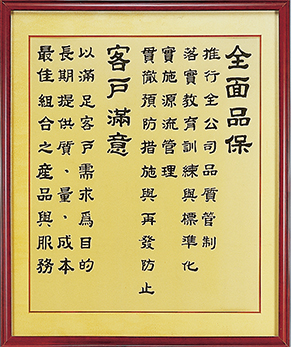 全面品保
推行全公司品質管制
落實教育訓練與標準化
實施源流管理
貫徹預防措施與再發防止
客戶滿意
以滿足客戶需求為目的
長期提供質、量、成本
最佳組合之產品與服務